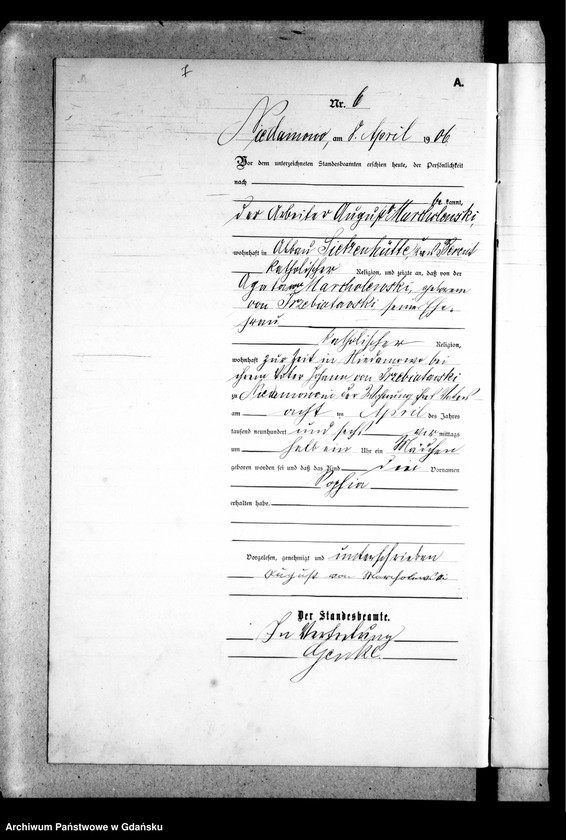 7
A.
Nr. 6
Niedamowo, am 8. April 1906
Vor dem unterzeichneten Standesbeamten erschien heute, der Persönlichkeit
nach
bekannt,
der Arbeiter August Marcholewski,
wohnhaft in Kreis Berent
katholischer Religion, und zeigte an, daß von der
Agata Marcholewski, geborene
von Trzebiatowski, seine Ehe-
frau
katholischer Religion,
wohnhaft zur Zeit in Niedamowo bei
ihrem Vater Johann von Trzebiatowski
zu Niedamowo in der Wohnung ihres Vaters
am acht ten April des Jahres
tausend neunhundert und sechs vor mittags
um halb ein Uhr ein Mädchen
geboren worden sei und daß das Kind den Vornamen
Sophia
erhalten habe.
Vorgelesen, genehmigt und unterschrieben
August von Marcholewski
Der Standesbeamte.
In Vertretung
Archiwum Państwowe w Gdańsku